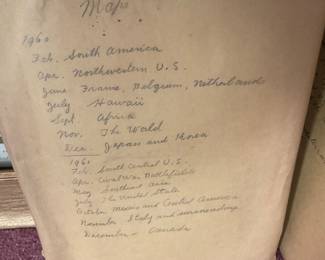 Maps
1960
Feb. South America
Apr. Northwestern U.S.
June France, Belgium, Netherland
July Hawaii
Sept. Africa
Nov. The World
Dec. Japan and Korea
1961
Feb. South Central U.S.
Apr. Civil War Battlefields
May Southeast Asia
July The United State
October Mexico and Central America
November Italy and
December - Canada